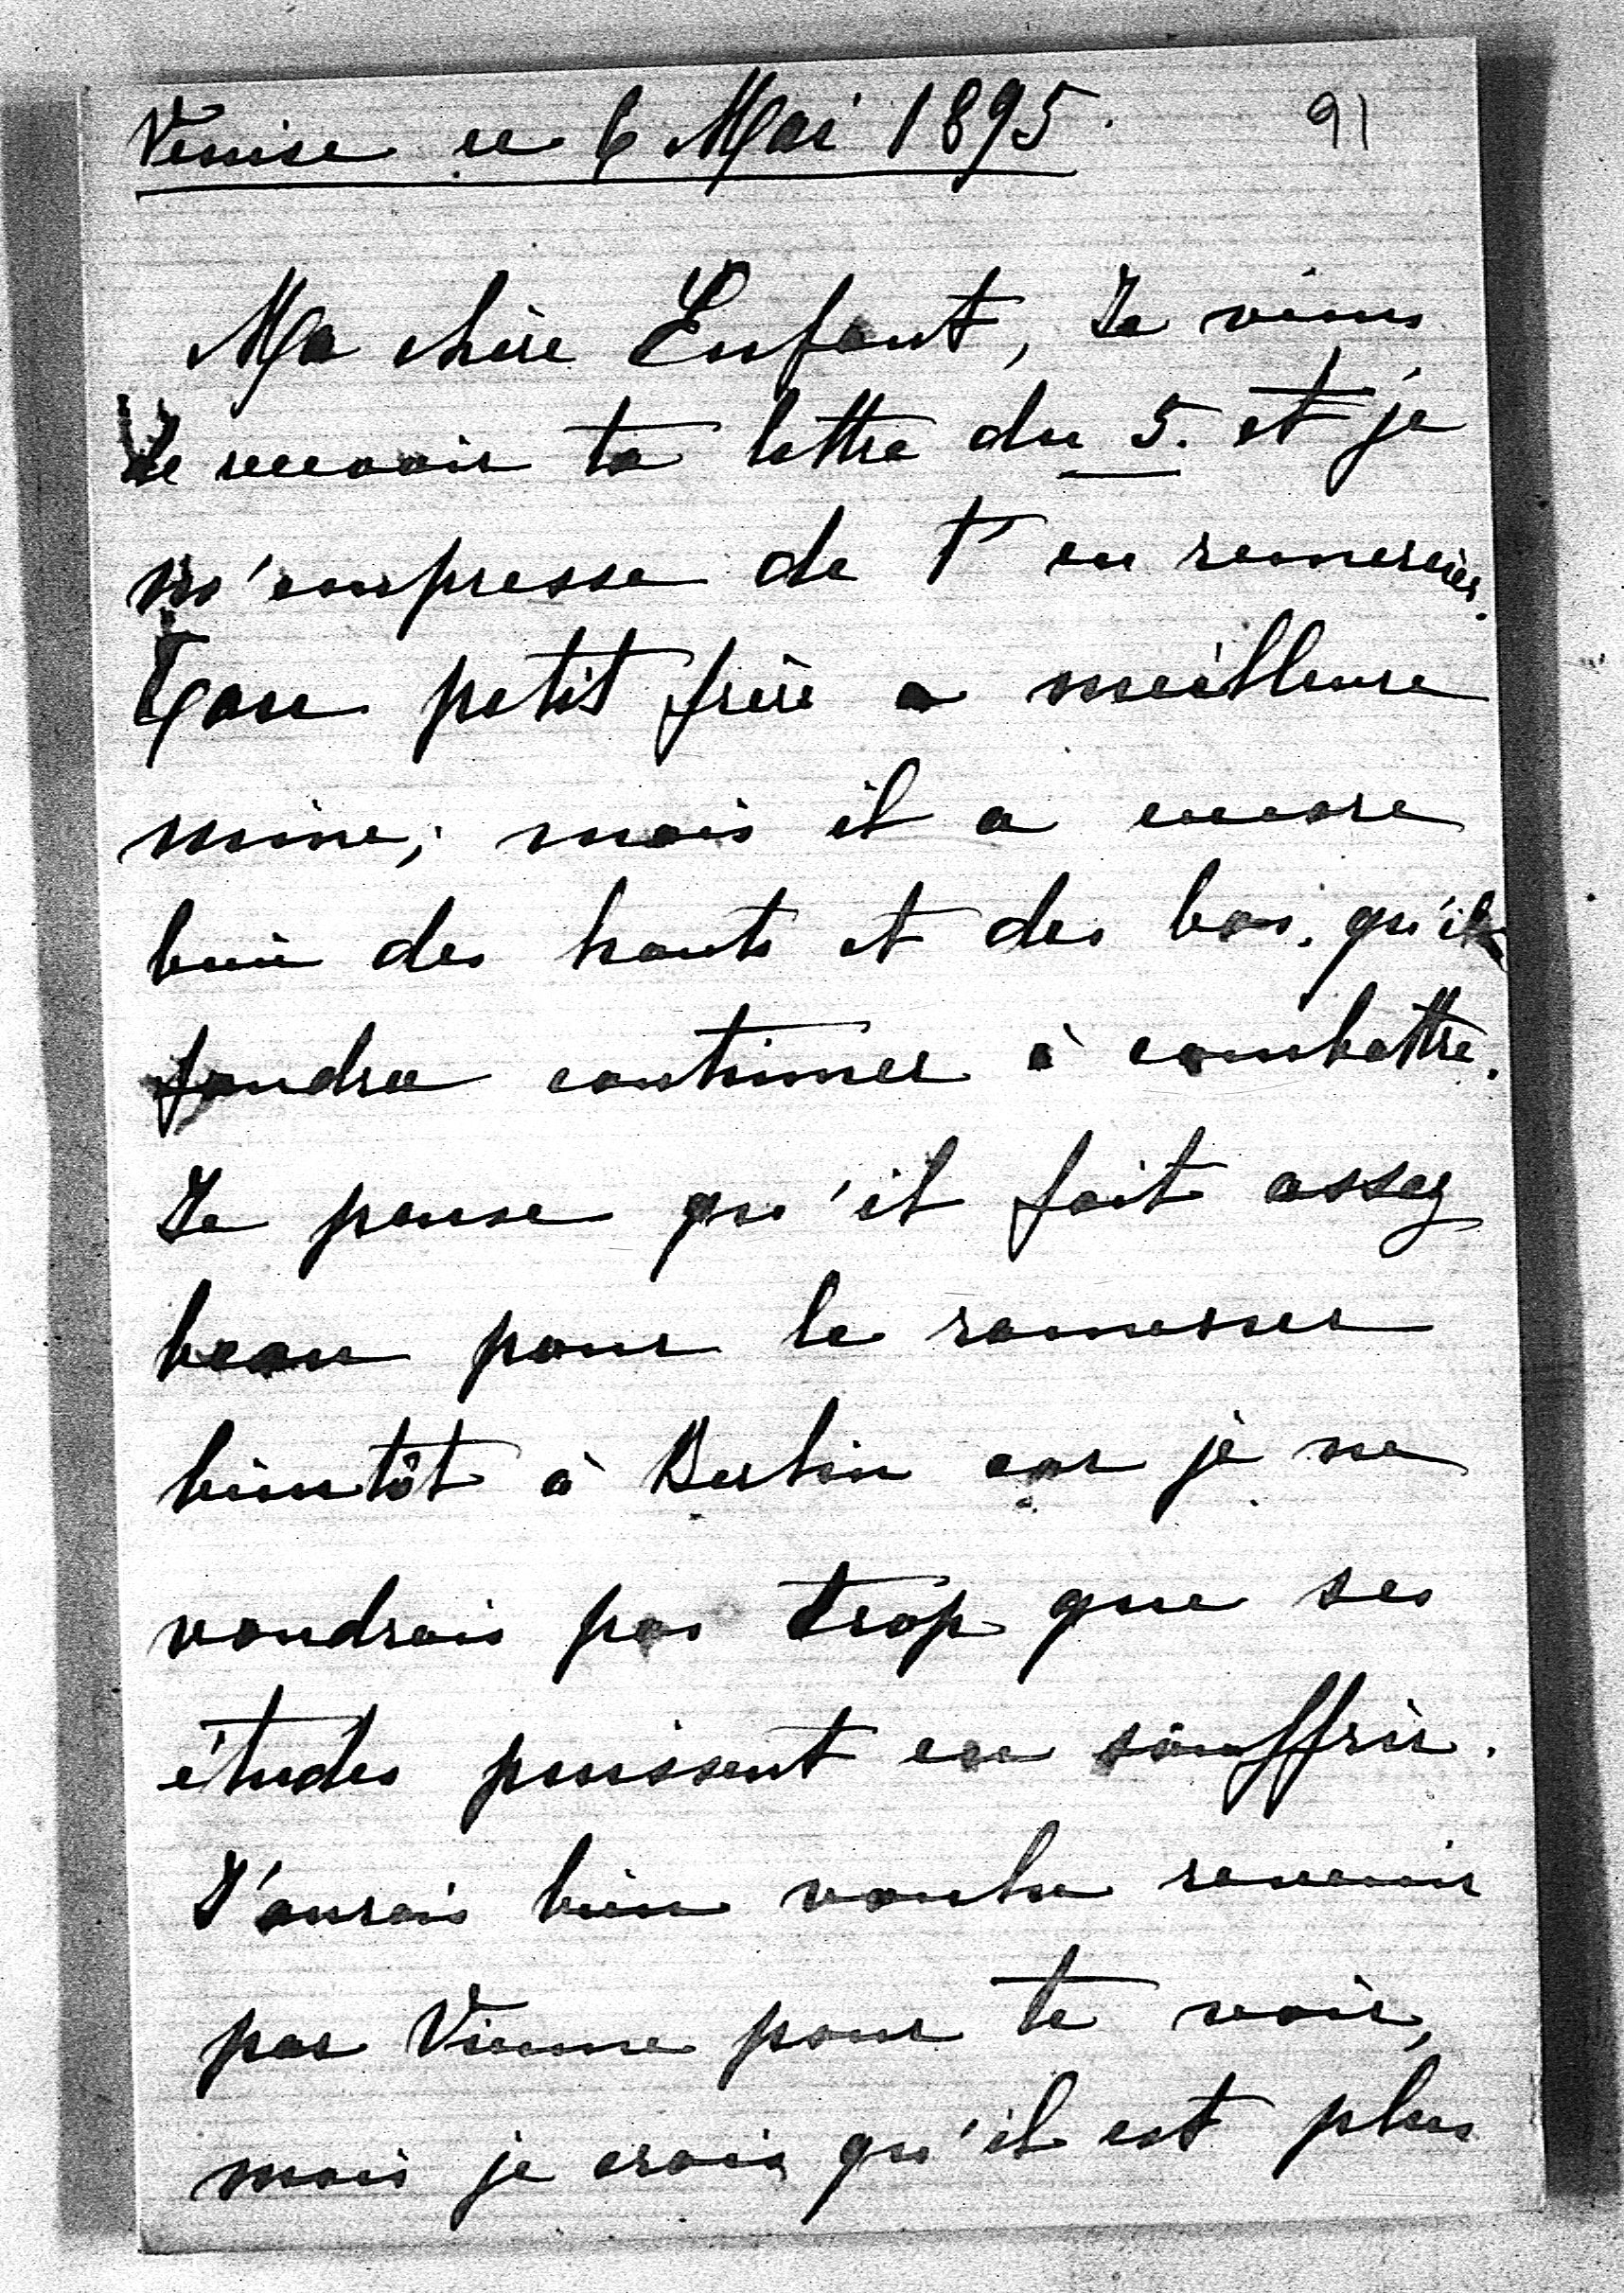 Venise ce 6 Mai 1895.
91
Ma chère Enfant, Je viens
de recevoir ta lettre du 5. et je
m'empresse de t'en remercier.
Ton petit frère a meilleure
mine; mais il a encore
bien des hauts et des bas, qu'il
faudra continuer à combattre.
Je pense qu'il fait assez
beau pour le ramener
bientôt à Berlin car je ne
voudrais pas trop que ses
études puissent en souffrir.
J'aurais bien voulu revenir
par Vienne pour te voir,
mais je crois qu'il est plus